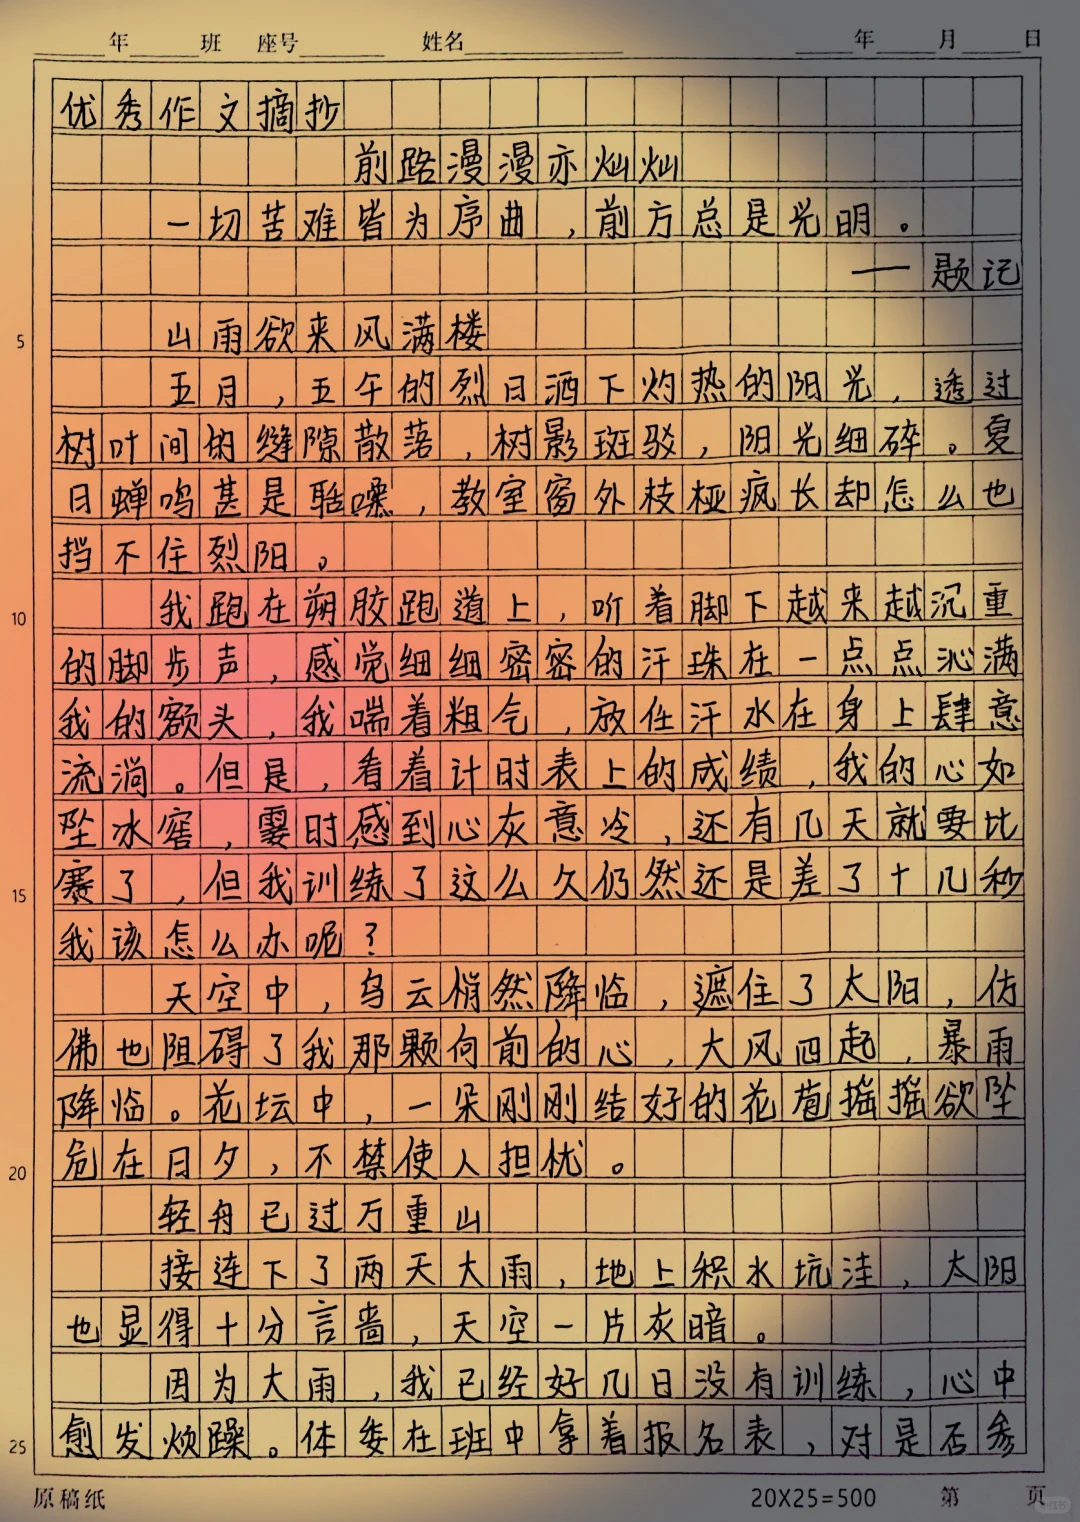 年 班 座号 姓名 年 月 日
优秀作文摘抄
前路漫漫亦灿灿
一切苦难皆为序曲，前方总是光明。
——题记
5 山雨欲来风满楼
五月，五午的烈日洒下灼热的阳光，透过
树叶间的缝隙散落，树影斑驳，阳光细碎。夏
日蝉鸣甚是聒噪，教室窗外枝桠疯长却怎么也
挡不住烈阳。
10 我跑在朔胶跑道上，听着脚下越来越沉重
的脚步声，感觉细细密密的汗珠在一点点沁满
我的额头，我喘着粗气，放任汗水在身上肆意
流淌。但是，看着计时表上的成绩，我的心如
坠冰窖，霎时感到心灰意冷，还有几天就要比
15 赛了，但我训练了这么久仍然还是差了十几秒
我该怎么办呢？
天空中，乌云悄然降临，遮住了太阳，仿
佛也阻碍了我那颗向前的心，大风四起，暴雨
降临。花坛中，一朵刚刚结好的花苞摇摇欲坠
20 危在日夕，不禁使人担忧。
轻舟已过万重山
接连下了两天大雨，地上积水坑洼，太阳
也显得十分言啬，天空一片灰暗。
因为大雨，我已经好几日没有训练，心中
25 愈发烦躁。体委在班中拿着报名表，对是否参
原稿纸 20X25=500 第 页